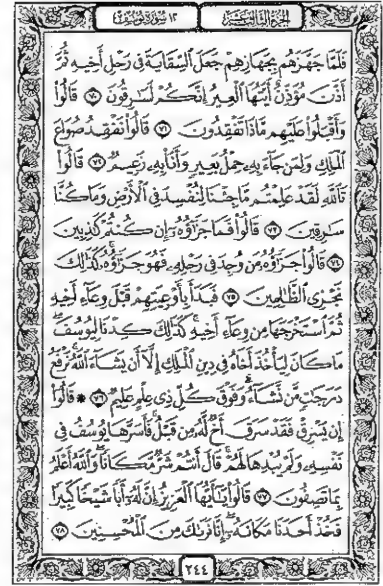 ١٢ سورة يوسف الجزء الثالث عشر
فَلَمَّا جَهَّزَهُم بِجَهَازِهِمْ جَعَلَ ٱلسِّقَايَةَ فِى رَحْلِ أَخِيهِ ثُمَّ
أَذَّنَ مُؤَذِّنٌ أَيَّتُهَا ٱلْعِيرُ إِنَّكُمْ لَسَٰرِقُونَ ٧٠ قَالُوا۟
وَأَقْبَلُوا۟ عَلَيْهِم مَّاذَا تَفْقِدُونَ ٧١ قَالُوا۟ نَفْقِدُ صُوَاعَ
ٱلْمَلِكِ وَلِمَن جَآءَ بِهِۦ حِمْلُ بَعِيرٍ وَأَنَا۠ بِهِۦ زَعِيمٌ ٧٢ قَالُوا۟
تَٱللَّهِ لَقَدْ عَلِمْتُم مَّا جِئْنَا لِنُفْسِدَ فِى ٱلْأَرْضِ وَمَا كُنَّا
سَٰرِقِينَ ٧٣ قَالُوا۟ فَمَا جَزَٰٓؤُهُۥٓ إِن كُنتُمْ كَٰذِبِينَ
٧٤ قَالُوا۟ جَزَٰٓؤُهُۥ مَن وُجِدَ فِى رَحْلِهِۦ فَهُوَ جَزَٰٓؤُهُۥ كَذَٰلِكَ
نَجْزِى ٱلظَّٰلِمِينَ ٧٥ فَبَدَأَ بِأَوْعِيَتِهِمْ قَبْلَ وِعَآءِ أَخِيهِ
ثُمَّ ٱسْتَخْرَجَهَا مِن وِعَآءِ أَخِيهِ كَذَٰلِكَ كِدْنَا لِيُوسُفَ
مَا كَانَ لِيَأْخُذَ أَخَاهُ فِى دِينِ ٱلْمَلِكِ إِلَّآ أَن يَشَآءَ ٱللَّهُ نَرْفَعُ
دَرَجَٰتٍ مَّن نَّشَآءُ وَفَوْقَ كُلِّ ذِى عِلْمٍ عَلِيمٌ ٧٦ * قَالُوٓا۟
إِن يَسْرِقْ فَقَدْ سَرَقَ أَخٌ لَّهُۥ مِن قَبْلُ فَأَسَرَّهَا يُوسُفُ فِى
نَفْسِهِۦ وَلَمْ يُبْدِهَا لَهُمْ قَالَ أَنتُمْ شَرٌّ مَّكَانًا وَٱللَّهُ أَعْلَمُ
بِمَا تَصِفُونَ ٧٧ قَالُوا۟ يَٰٓأَيُّهَا ٱلْعَزِيزُ إِنَّ لَهُۥٓ أَبًا شَيْخًا كَبِيرًا
فَخُذْ أَحَدَنَا مَكَانَهُۥٓ إِنَّا نَرَىٰكَ مِنَ ٱلْمُحْسِنِينَ ٧٨
٢٤٤